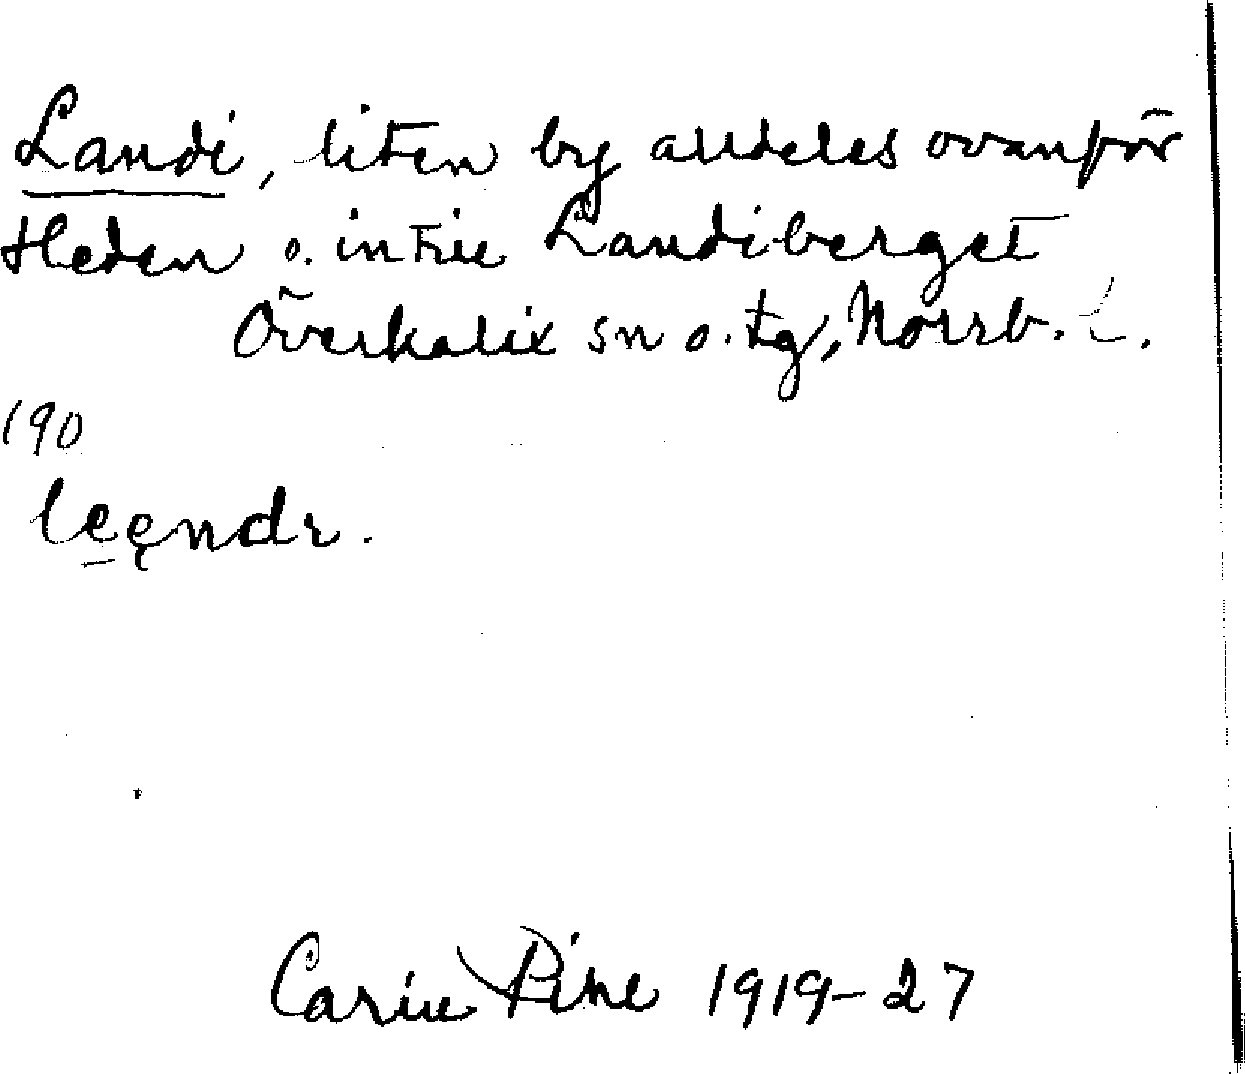 Landi, liten by alldeles ovanför
Heden o. intill Landiberget
Överkalix sn o. tg, Norrb. L.
190
leęndr.
Carin Pihl 1919-27